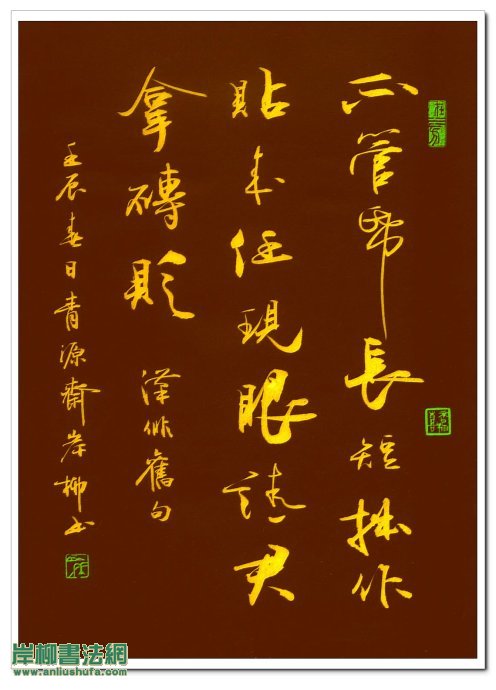 不管長短拙作
貼来任現眼請君
拿磚
漢俳舊句
壬辰春日青源齋岸柳书
岸柳書法網
www.anliushufa.com